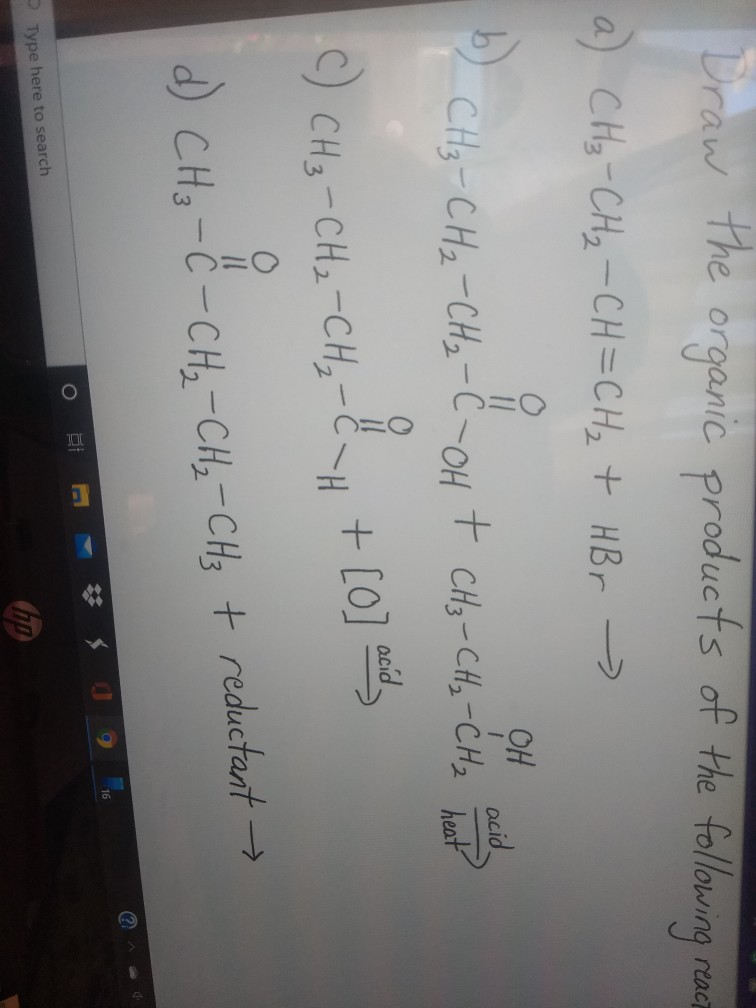 Draw the organic products of the following reac
a) CH3-CH2-CH=CH2 + HBr →
O
b) CH3-CH2-CH2-C-OH + CH3-CH2-CH2 acid heat →
OH
O
c) CH3-CH2-CH2-C-H + [O] acid →
O
d) CH3-C-CH2-CH2-CH3 + reductant →
Type here to search
16
hp